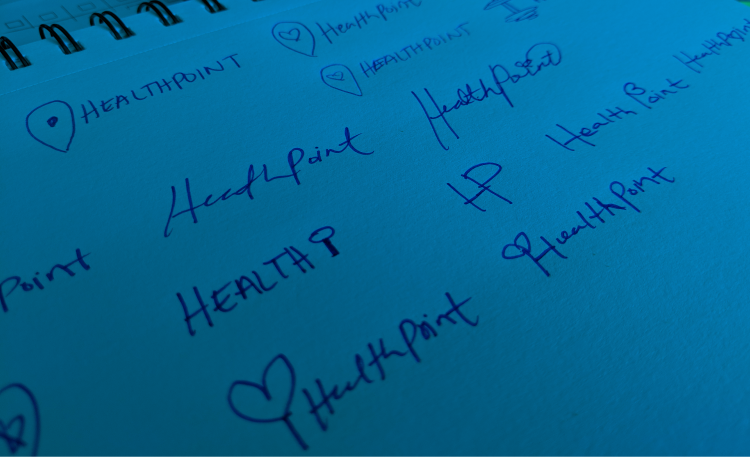 HealthPoint
HEALTHPOINT
HEALTHPOINT
HealthPoint
HealthPoint
HealthPoint
HealthPoint
HP
Point
HEALTH
HealthPoint
HealthPoint